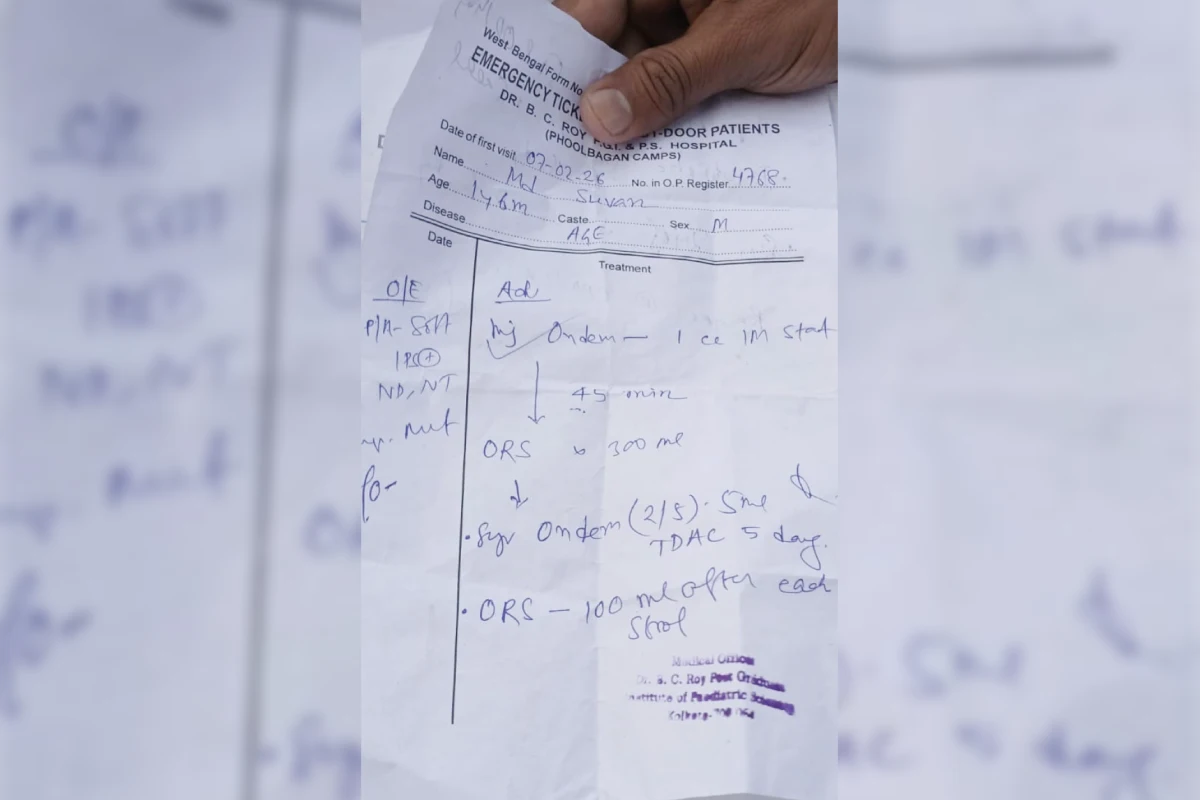 West Bengal Form No
EMERGENCY TICK T-DOOR PATIENTS
DR. B. C. ROY P.G.I. & P.S. HOSPITAL
(PHOOLBAGAN CAMPS)
Date of first visit 07-02-26 No. in O.P. Register 4768
Name Md Suvan
Age 1y6m Caste Sex M
Disease AGE
Date Treatment
O/E
P/A- Soft
IPS(+)
ND, NT
Adv
Inj Ondem — 1 cc IM stat
45 min
ORS 300 ml
Syr Ondem (2/5) - 5ml
TDAC 5 day.
ORS — 100 ml after each
Stool
Medical Officer
Dr. B. C. Roy Post Graduate
Institute of Paediatric Sciences
Kolkata-700 054